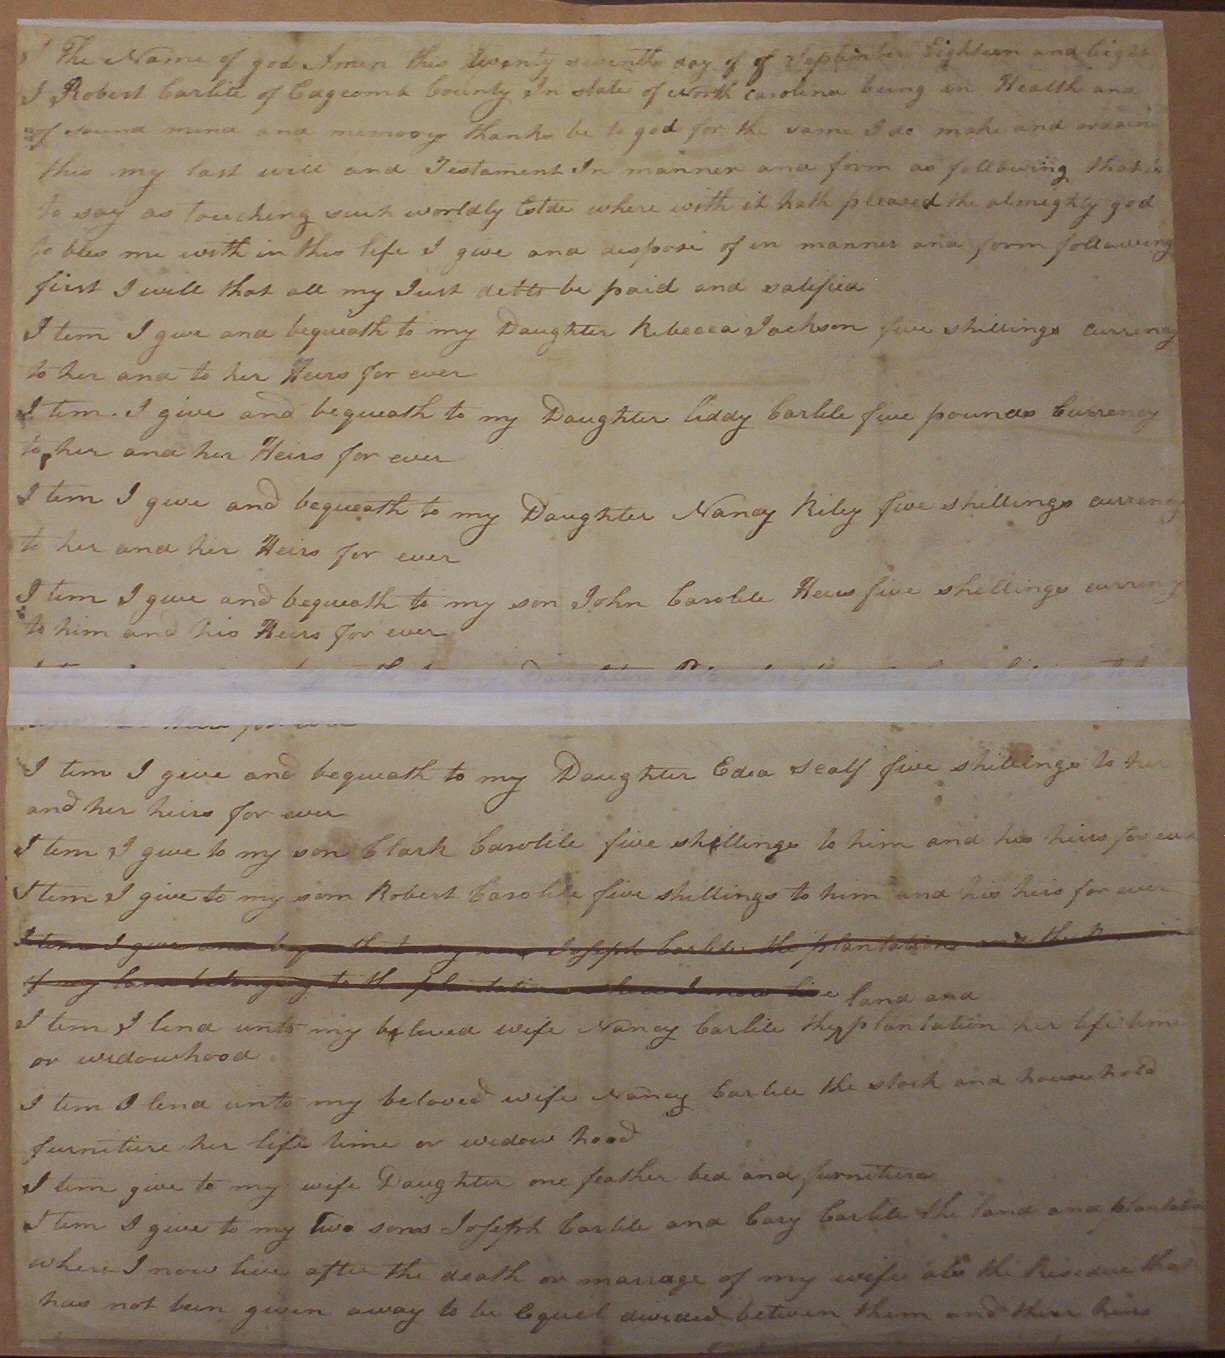 The Name of god Amen this twenty seventh day of of September Eighteen and Eight
I Robert Carlile of Edgecomb County In state of North carolina being in Health and
of sound mind and memory thanks be to god for the same I do make and ordain
this my last will and Testament In manner and form as following that is
to say as touching such worldly Estate where with it hath pleased the almighty god
to bles me with in this life I give and dispose of in manner and form following
first I will that all my Just detts be paid and satified
I tem I give and bequeath to my Daughter Rebecca Jackson five shillings currency
to her and to her Heirs for ever
I tem I give and bequeath to my Daughter liddy Carlile five pounds Currency
to her and her Heirs for ever
I tem I give and bequeath to my Daughter Nancy Riley five shillings currency
to her and her Heirs for ever
I tem I give and bequeath to my son John Carolile Heirs five shillings currency
to him and his Heirs for ever
my Daughter
Heirs for ever
I tem I give and bequeath to my Daughter Edea Sealf five shillings to her
and her heirs for ever
I tem I give to my son Clark Carolile five shillings to him and his heirs for ever
I tem I give to my son Robert Carolile five shillings to him and his heirs for ever
I tem I give and bequeath to my son Joseph Carlile the plantation and the
of my land belonging to the plantation where I now live land and
I tem I lend unto my beloved wife Nancy Carlile the plantation her life time
or widowhood
I tem I lend unto my beloved wife Nancy Carlile the stock and house hold
furniture her life time or widow hood
I tem give to my wife Daughter one feather bed and furniture
I tem I give to my Two sons Joseph Carlile and Cary Carlile the land and plantation
where I now live after the death or marrage of my wife also the Residue that
has not been given away to be Equel devided between them and their heirs